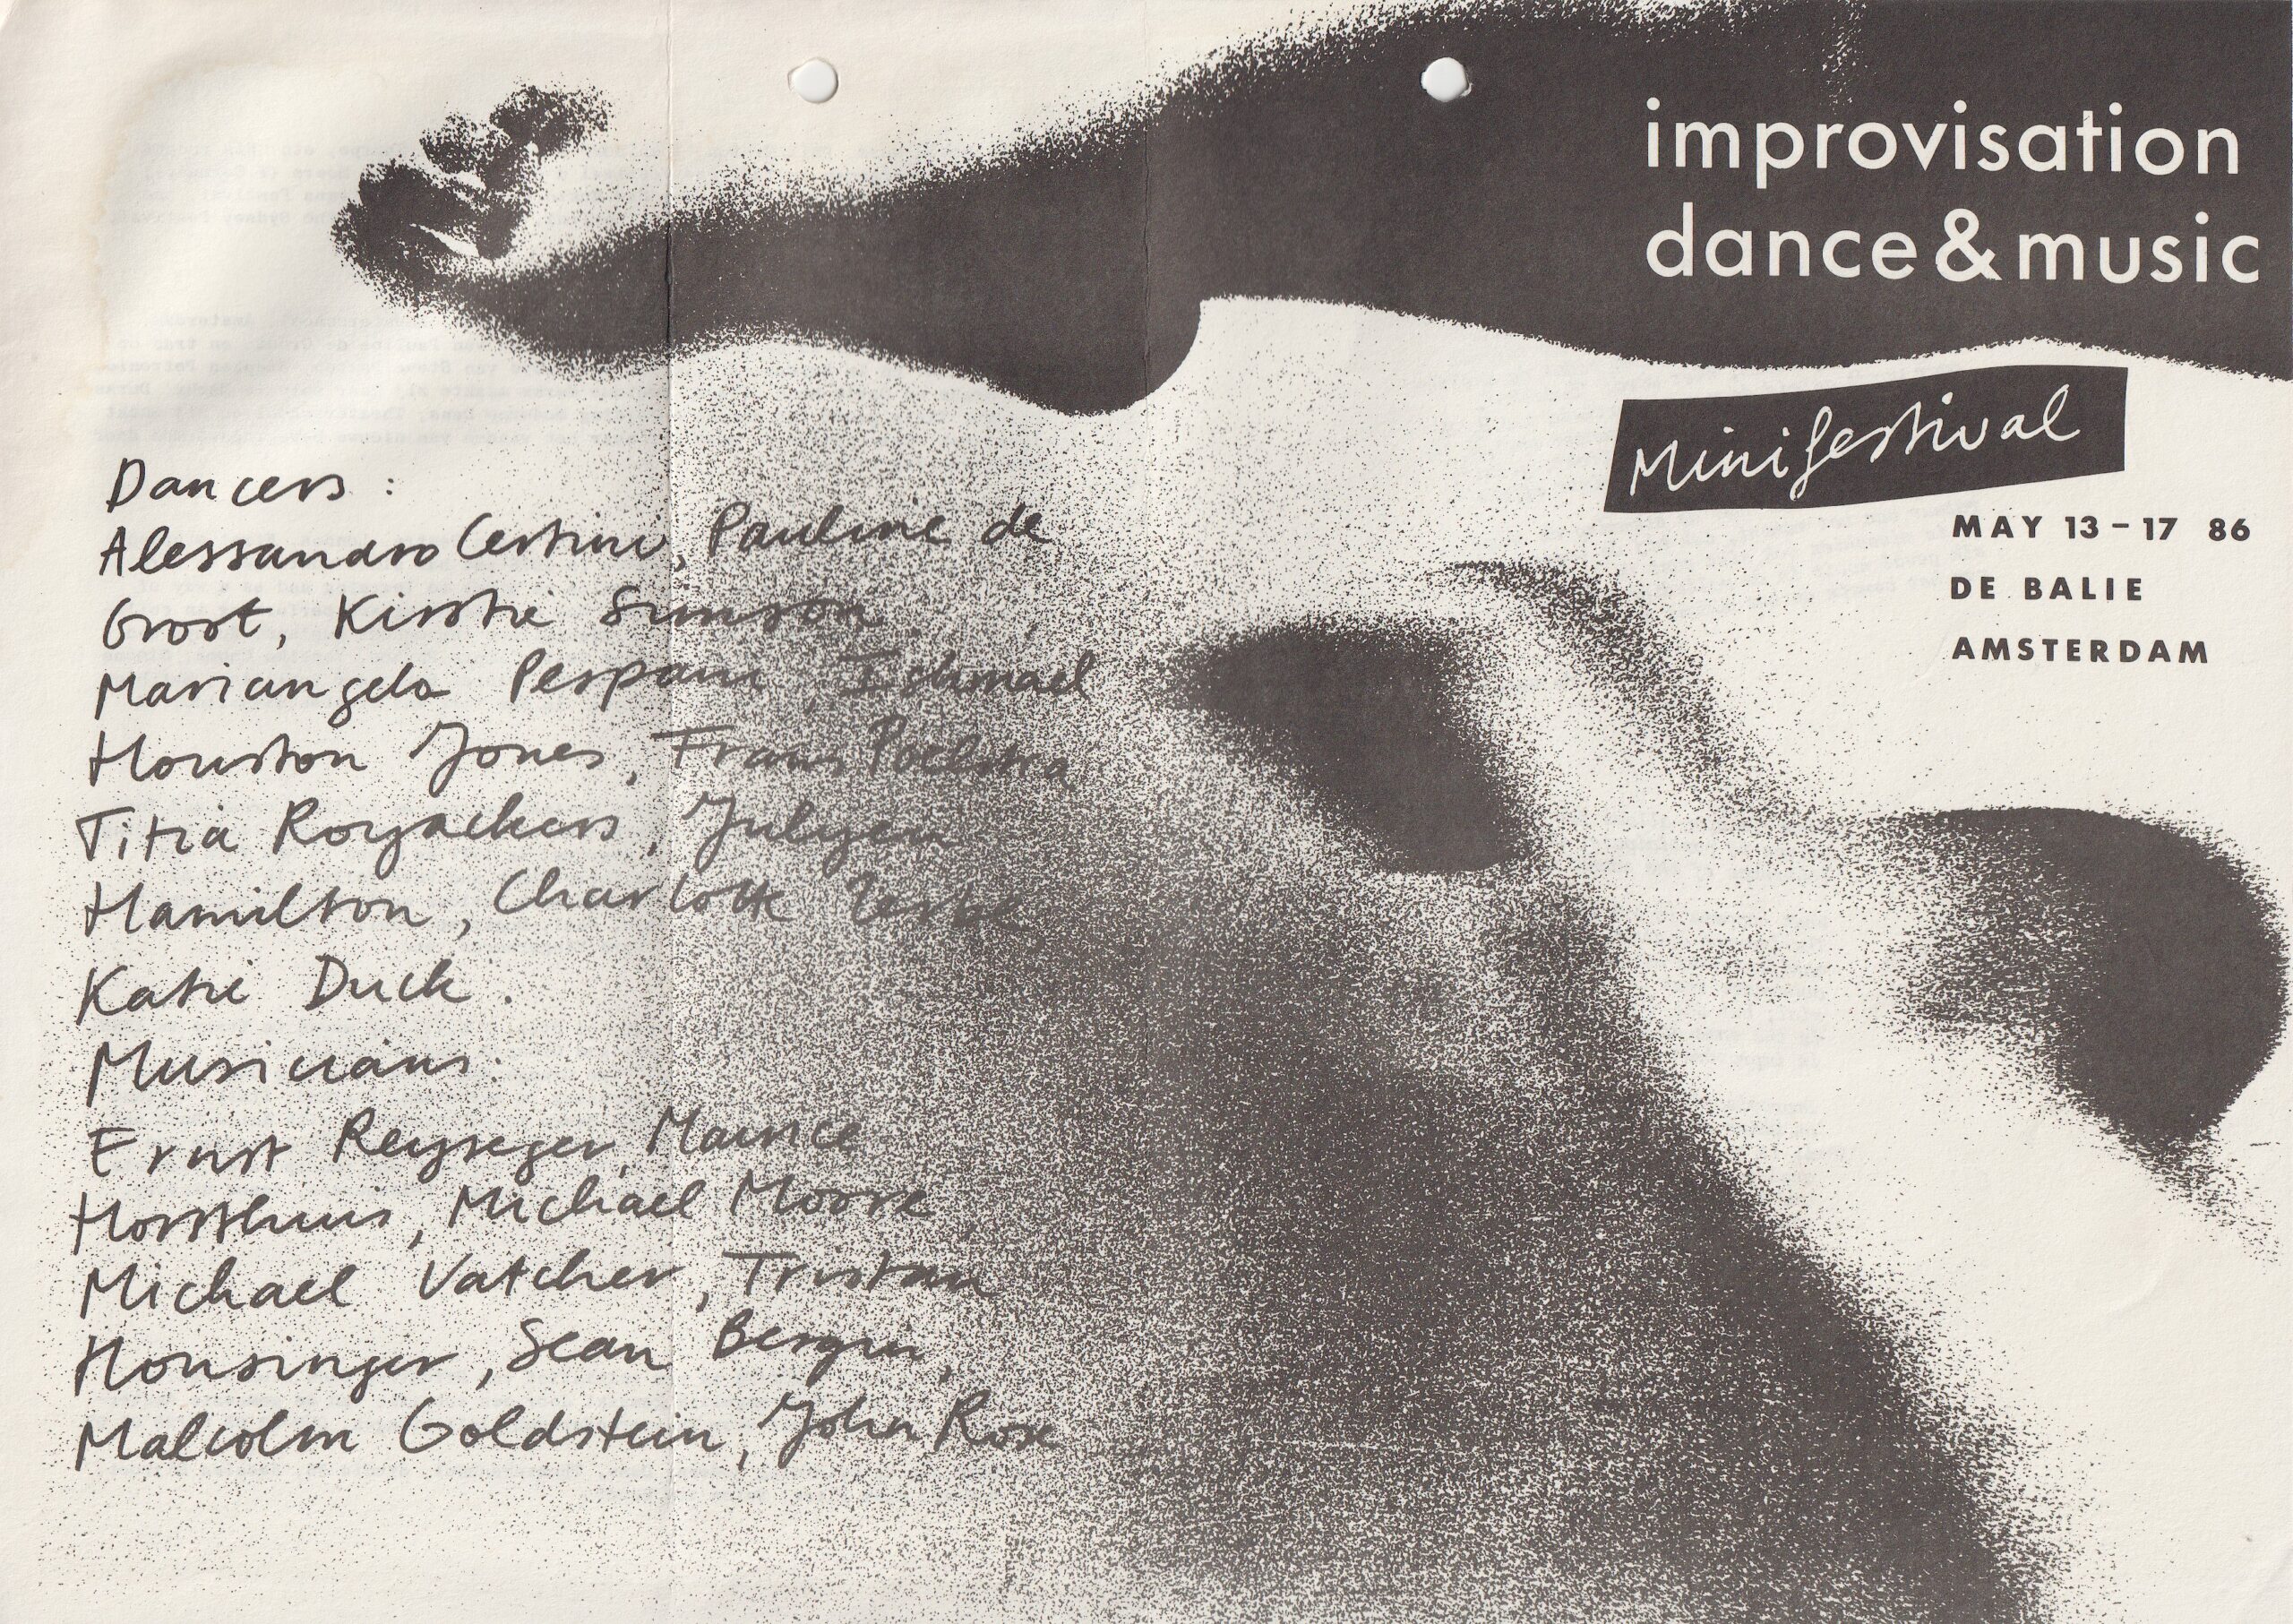 improvisation
dance & music
Minifestival
MAY 13 – 17 86
DE BALIE
AMSTERDAM
Dancers :
Alessandro Certini, Pauline de
Groot, Kirstie Simson
Mariangela Pespani, Ishmael
Houston Jones, Frans Poelstra
Titia Royackers, Julyen
Hamilton, Charlotte Zerbe
Katie Duck .
Musicians:
Ernst Reyseger, Maurice
Horsthuis, Michael Moore
Michael Vatcher, Tristan
Honsinger, Sean Bergin,
Malcolm Goldstein, John Rose